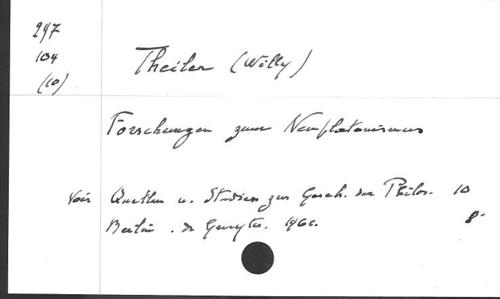 297
104
(10)
Theiler (Willy)
Forschungen zum Neuplatonismus
Voir Quellen u. Studien zur Gesch. der Philos. 10
Berlin . de Gruyter. 1966. 8-